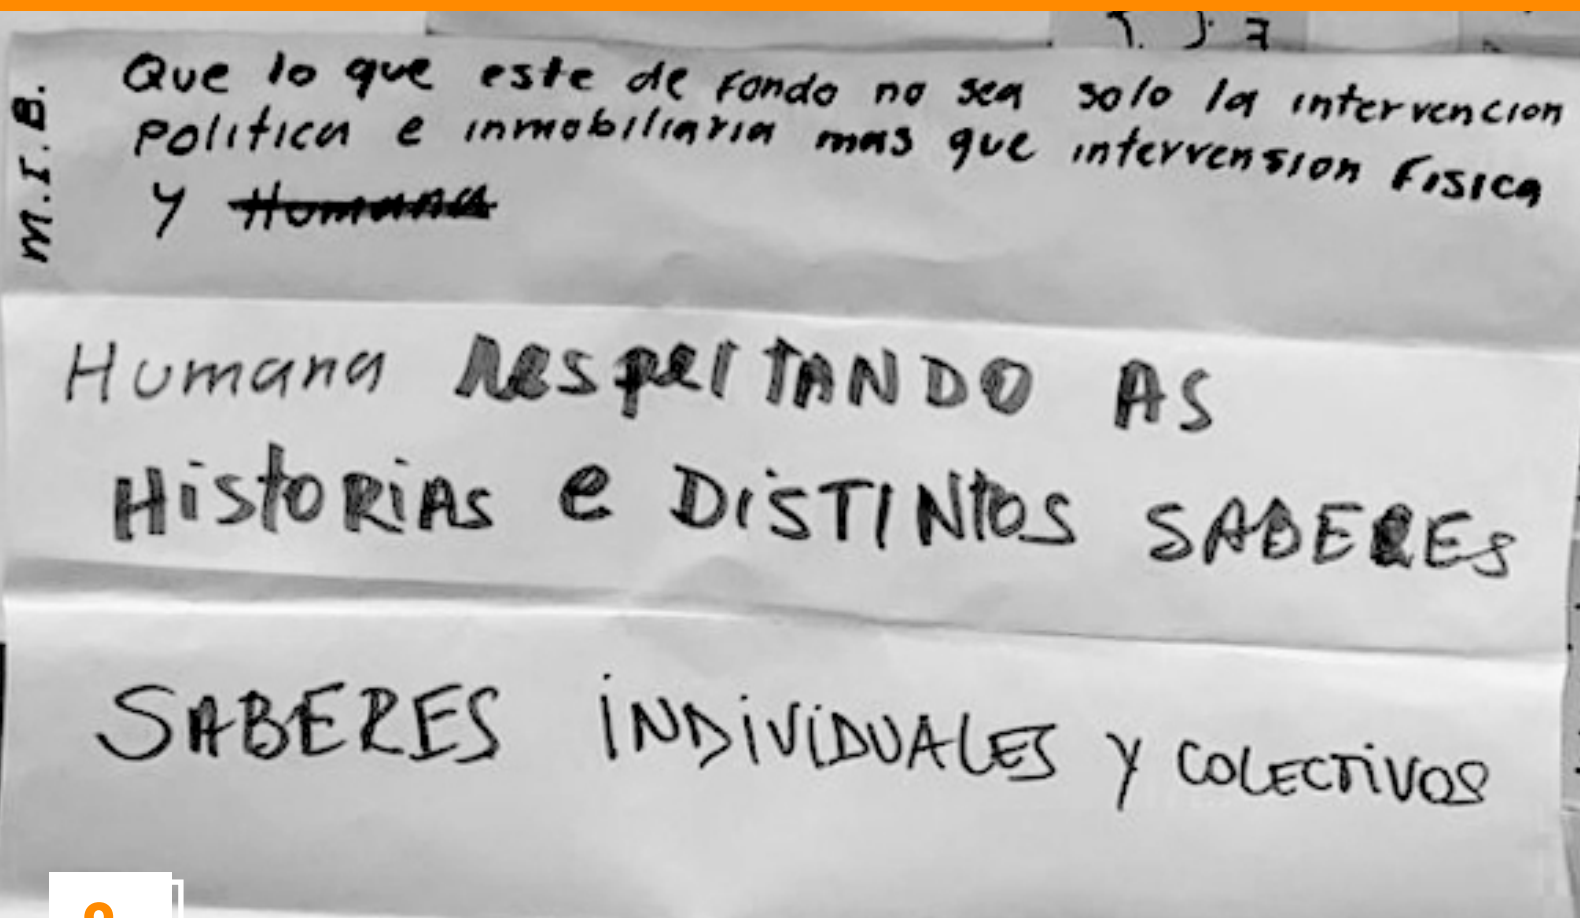 M.I.B.
Que lo que este de fondo no sea solo la intervencion
politica e inmobiliaria mas que intervension fisica
y Humana
Humana RespeITANDO AS
HistoRiAS e DiSTINtOS SABERES
SABERES iNDiViDUALES Y COLECTiVOS